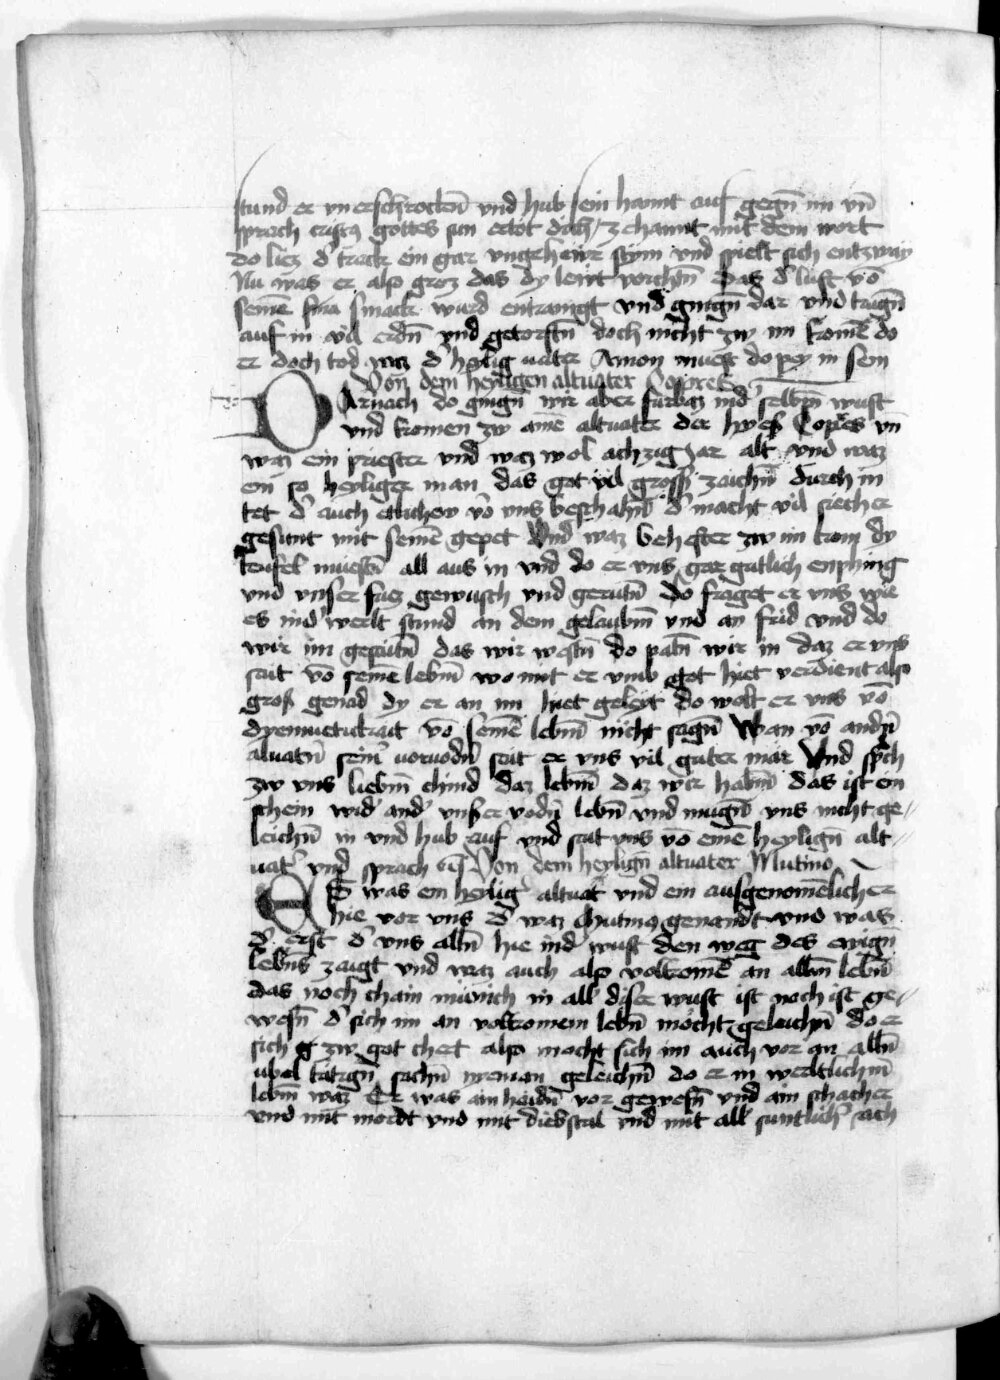 stund er vnerschrockē vnd hub sein hannt auf gegn̄ im vn̄
sprach cristꝰ gottes sun ertöt dich / zehannt mit dem wort
do liez d' track ein gar vngehewr stym vnd spielt sich entzway
Nu was er also groz das dy lewt vorchtn̄ das d' luft vō
seinē smack wurd entraynigt vnd gingn̄ dar vnd trugn̄
auf in vil erdn̄ vnd getorstn̄ doch nicht zw im komē do
er doch tod waz d' heylig vater Amon muest do pey in sein
Von dem heyligen altuater Copres
DArnach do gingn̄ wir aber furbaz ind' selbm̄ wust
vnd komen zw ainē altuater der hyes Copres vn̄
waz ein priester vnd waz wol achzig Jar alt vnd waz
ein so heyliger man das got vil grosß zaichn̄ durch in
tet d' auch etlichew vō vns beschahn̄ d' macht vil siecher
gesunt mit seinē gepet Vnd waz behefter zw im kom dy
teufel muestn̄ all aus in vnd do er vns gar gutlich enphing
vnd vnser fuez gewusch vnd gerutn̄ do fraget er vns wie
es ind' werlt stund an dem gelaubm̄ vnd an frid vnd do
wir im gesaitn̄ das wir westn̄ do patn̄ wir in daz er vns
sait vō seinē lebm̄ wo mit er vmb got hiet verdient also
groß genad dy er an im hiet geleyt do wolt er vns vō
dyemuetichait vō seinē lebm̄ nicht sagn̄ Wan vō andn̄
altuatn̄ sein' voruodn̄ sait er vns vil guter mär Vnd sp̄ch
zw vns liebm̄ chind daz lebm̄ daz wir habm̄ das ist ein
schein wid' and' vnser vodn̄ lebn̄ vnd mugn̄ vns nicht ge⸗
leichn̄ in vnd hub auf vnd sait vns vō einē heylign̄ alt⸗
uat' vnd sprach Von dem heylign̄ altuater Mutino
ES was ein heylig' altuat' vnd ein ausgenomēlicher
hie vor vns d' waz Mutinꝰ genandt vnd was
d' erst d' vns alln̄ hie ind' wust den weg des ewign̄
lebns zaigt vnd waz auch also volkomē an allm̄ lebn̄
das noch chain münich in all' diser wust ist noch ist ge⸗
wesn̄ d' sich im an volkomem lebn̄ möcht geleichn̄ do er
sich zw got chert also mocht sich im auch vor an alln̄
vbel tätign̄ sachn̄ nyeman geleichn̄ do er in werltlichm̄
lebm̄ waz Er was ain haidn̄ vor gewesn̄ vnd ain schacher
vnd mit mordt vnd mit diebstal vnd mit all' suntlich' sach